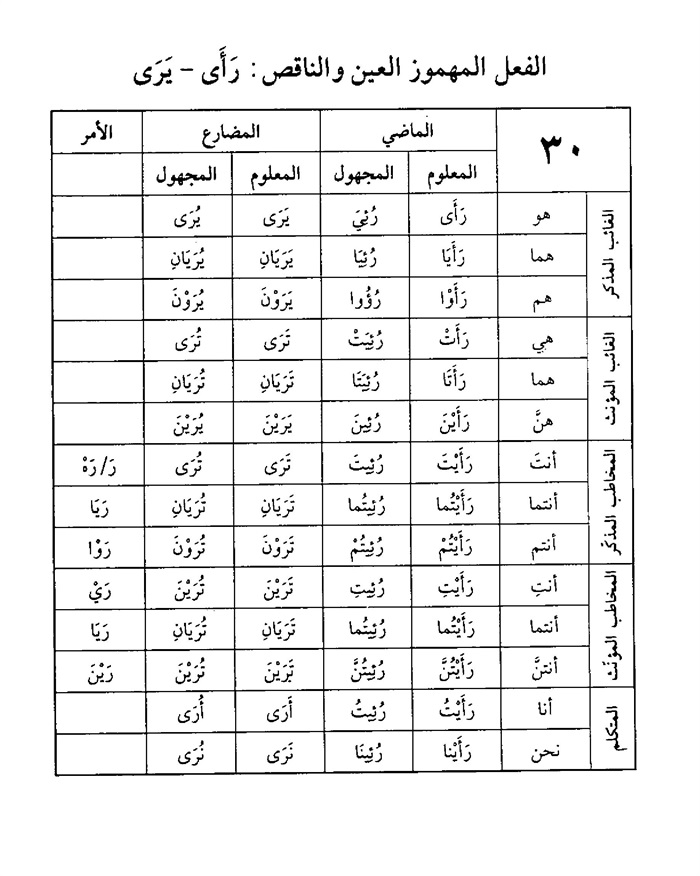 الفعل المهموز العين والناقص: رَأَى – يَرَى
٣٠ الماضي المضارع الأمر
المعلوم المجهول المعلوم المجهول
الغائب المذكر
هو رَأَى رُئِيَ يَرَى يُرَى
هما رَأَيَا رُئِيَا يَرَيَانِ يُرَيَانِ
هم رَأَوْا رُؤُوا يَرَوْنَ يُرَوْنَ
الغائب المؤنث
هي رَأَتْ رُئِيَتْ تَرَى تُرَى
هما رَأَتَا رُئِيَتَا تَرَيَانِ تُرَيَانِ
هنَّ رَأَيْنَ رُئِينَ يَرَيْنَ يُرَيْنَ
المخاطب المذكر
أنتَ رَأَيْتَ رُئِيتَ تَرَى تُرَى رَ/رَهْ
أنتما رَأَيْتُما رُئِيتُما تَرَيَانِ تُرَيَانِ رَيَا
أنتم رَأَيْتُمْ رُئِيتُمْ تَرَوْنَ تُرَوْنَ رَوْا
المخاطب المؤنّث
أنتِ رَأَيْتِ رُئِيتِ تَرَيْنَ تُرَيْنَ رَيْ
أنتما رَأَيْتُما رُئِيتُما تَرَيَانِ تُرَيَانِ رَيَا
أنتنَّ رَأَيْتُنَّ رُئِيتُنَّ تَرَيْنَ تُرَيْنَ رَيْنَ
المتكلم
أنا رَأَيْتُ رُئِيتُ أَرَى أُرَى
نحن رَأَيْنا رُئِينَا نَرَى نُرَى